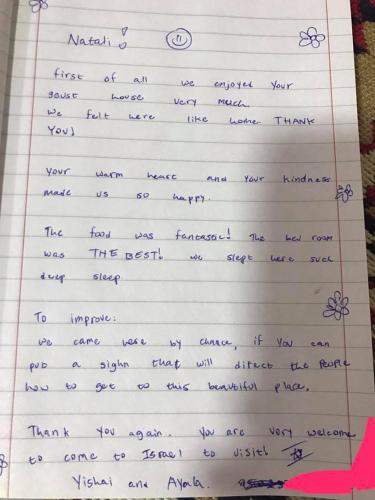 Natali!
first of all we enjoyed your
goust house very much
we felt here like home THANK
YOU!
Your warm heart and your kindness
made us so happy.
The food was fantastic! The bed room
was THE BEST! we slept here such
deep sleep
To improve:
we came here by chance, if you can
put a sighn that will ditect the people
how to get to this beautiful place.
Thank you again. You are very welcome
to come to Israel to visit!
Yishai and Ayala.